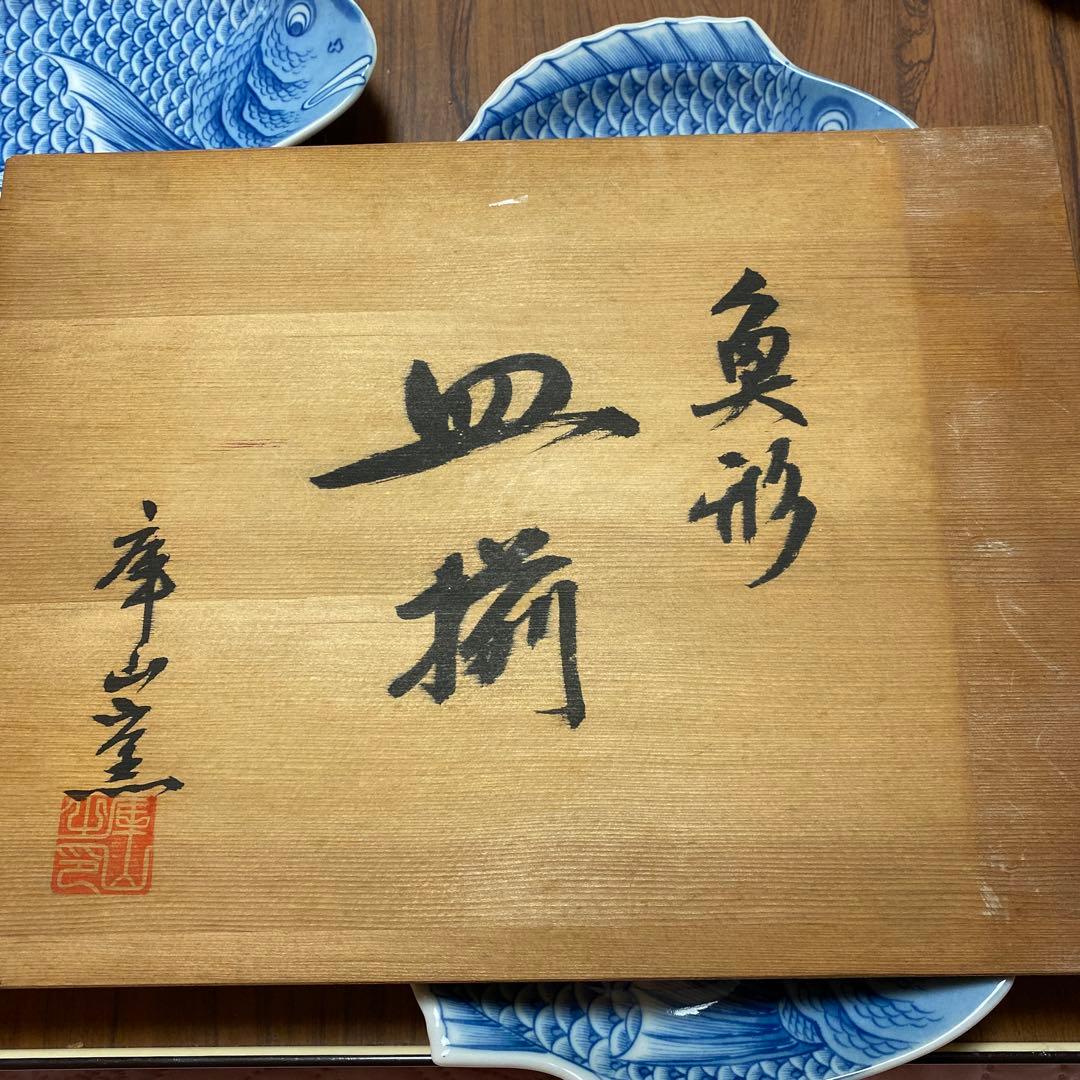 魚形
皿揃
庫山窯
庫山之印